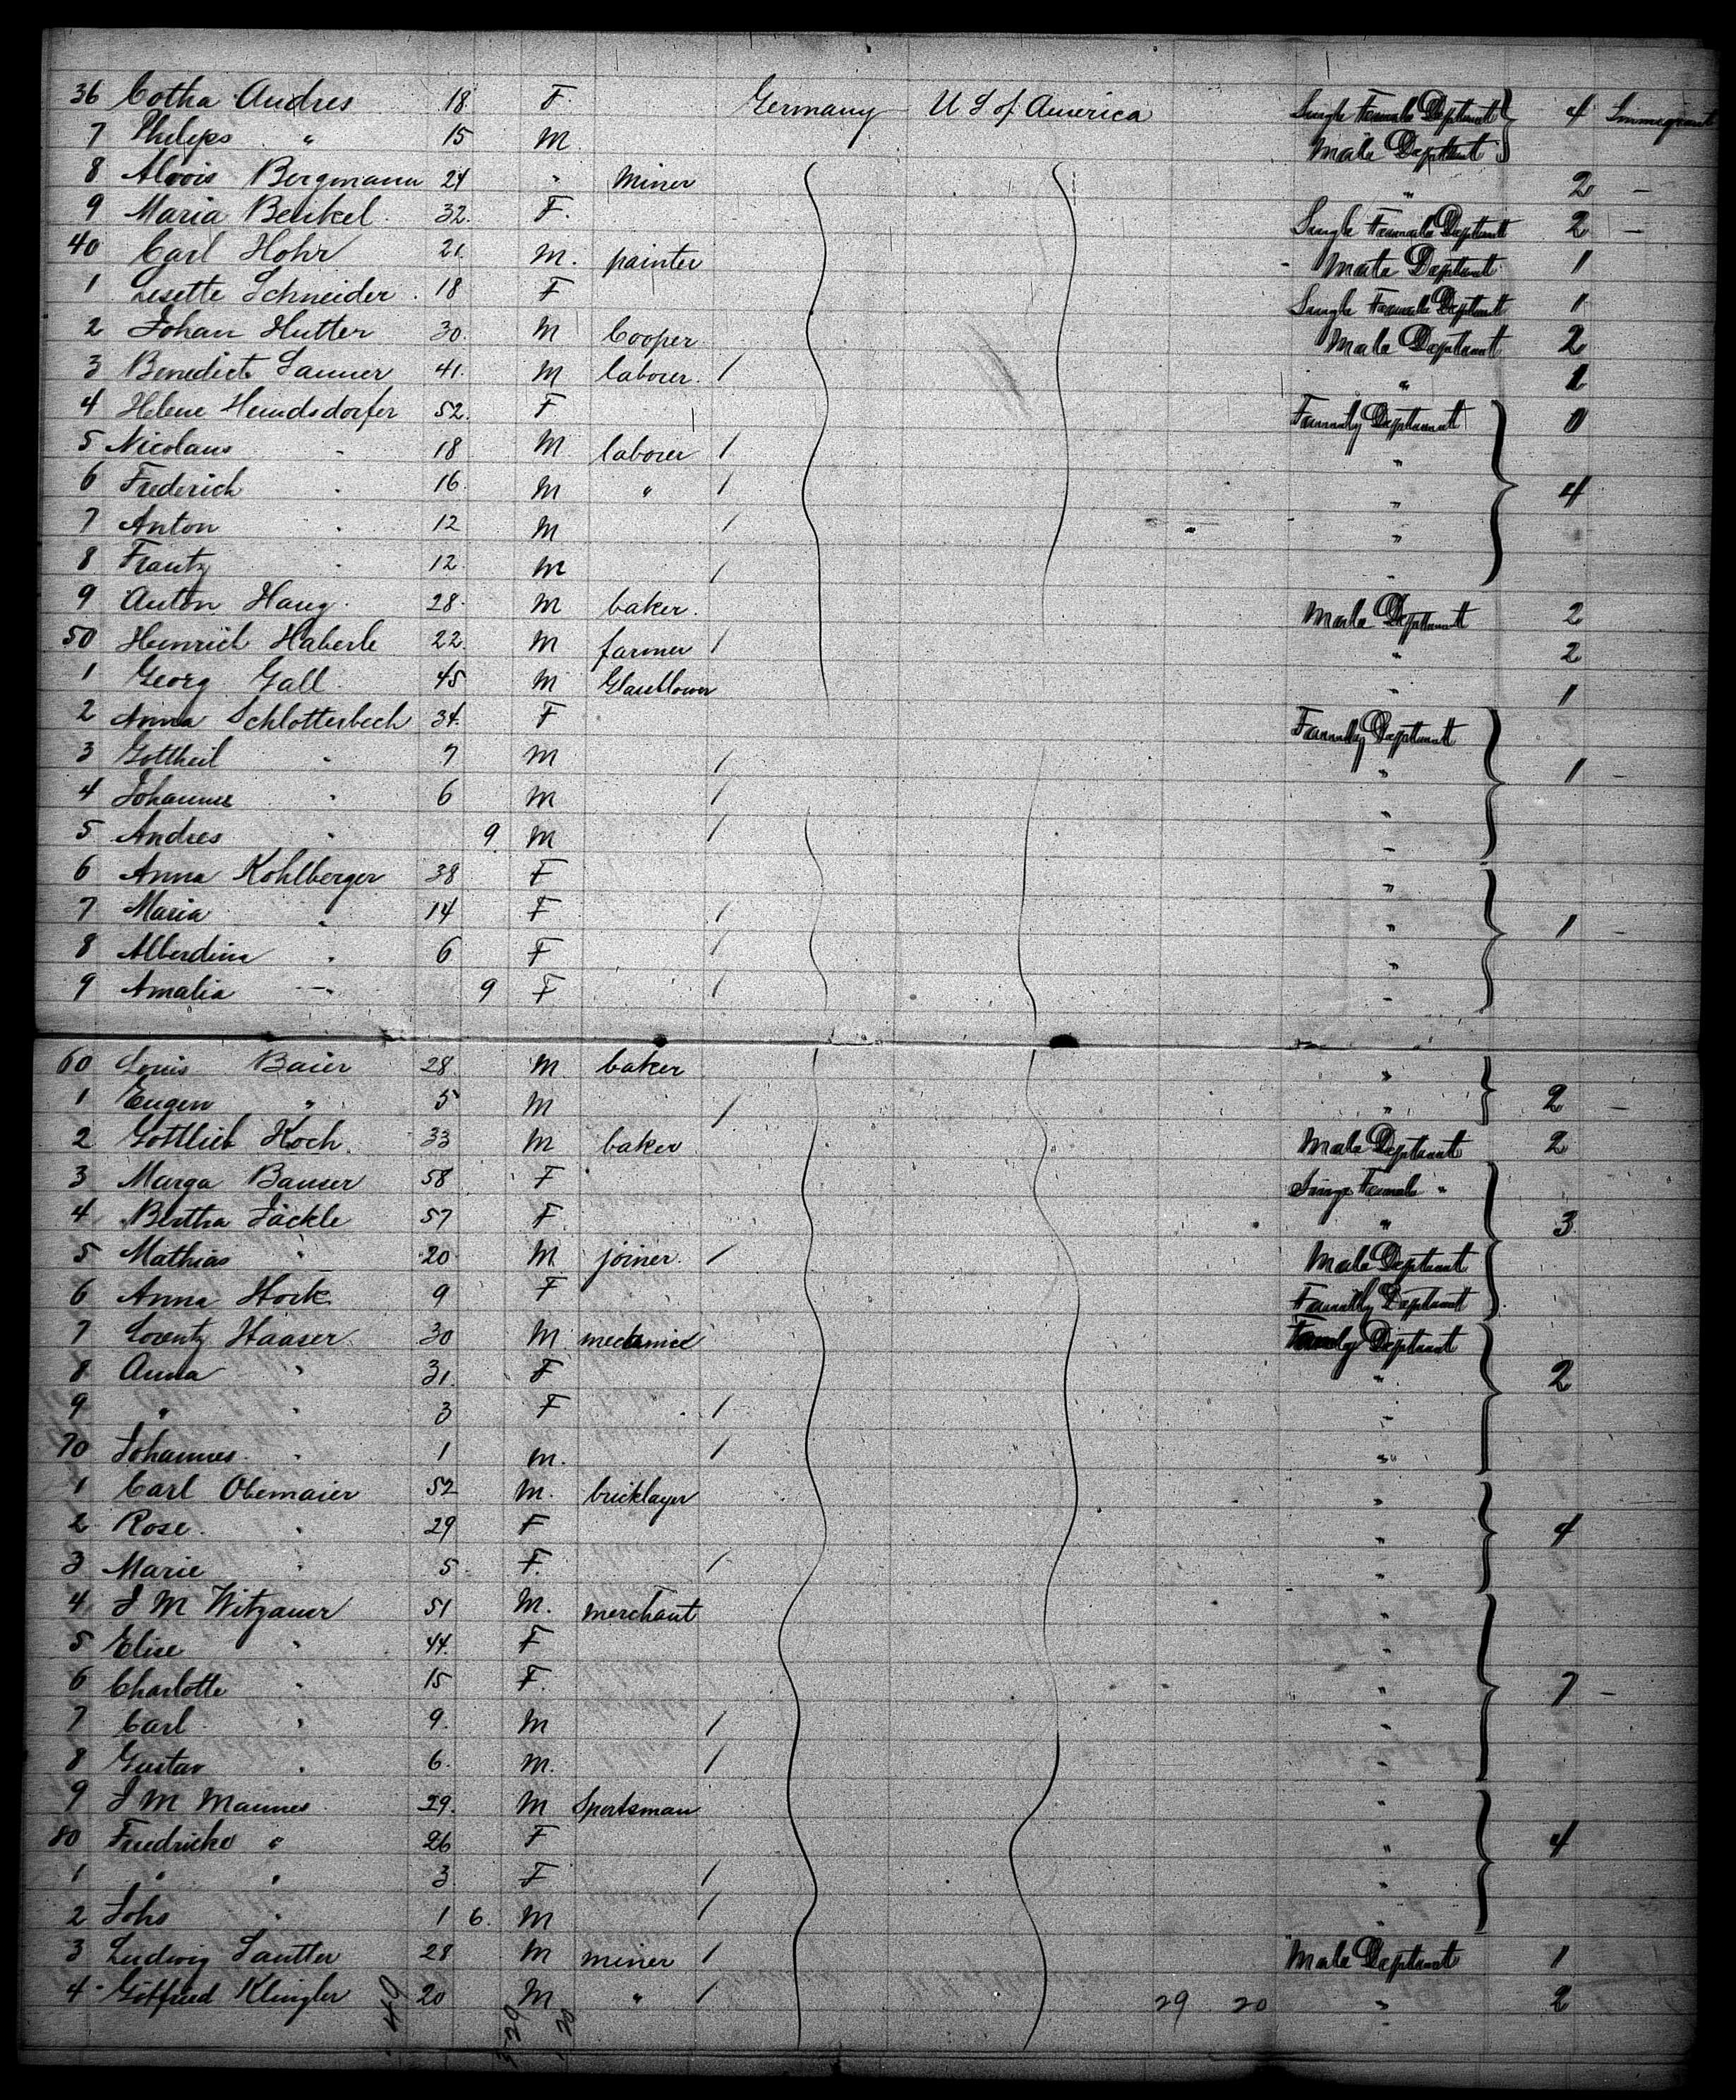 36 Cotha Andres 18 F. Germany U S of America Single Female Deptment 4 Immigrant
7 Philips " 15 M. Male Deptment
8 Alvois Bergmann 24 " Miner " 2 -
9 Maria Benkel 32. F. Single Female Deptment 2 -
40 Carl Hohr 21. M. painter Male Deptment 1
1 Lesette Schneider 18 F Single Female Deptment 1
2 Johan Hutter 30. M Cooper Male Deptment 2
3 Benedict Sauner 41. M laborer / " 1
4 Helene Hundsdorfer 52. F Family Deptment 0
5 Nicolaus " 18 M laborer / "
6 Frederich " 16. M " / " 4
7 Anton " 12 M / "
8 Frantz " 12. M / "
9 Anton Haug. 28. M baker. Male Deptment 2
50 Heinrich Haberle 22. M farmer / " 2
1 Georg Gall. 45 M Glassblower " 1
2 Anna Schlotterbech 34. F Family Deptment
3 Gottheil " 7 M / " 1 -
4 Johannes " 6 M / "
5 Andres " 9 M / "
6 Anna Kohlberger 38 F "
7 Maria " 14 F / " 1 -
8 Alberdina " 6 F / "
9 Amalia " 9 F / "
60 Louis Baier 28 M baker "
1 Eugen " 5 M / " 2 -
2 Gottlieb Koch. 33 M baker Male Deptment 2
3 Marga Bauser 58 F Single Female "
4 Bertha Jäckle 57 F " 3
5 Mathias " 20 M joiner. / Male Deptment
6 Anna Hork 9 F Family Deptment
7 Lorentz Haaser 30 M mechanic Family Deptment
8 Anna " 31. F " 2
9 " " 3 F / "
70 Johannes " 1 M. / "
1 Carl Obemaier 52 M. bricklayer "
2 Rose. " 29 F " 4
3 Marie " 5 F. / "
4 J M Witzauer 51 M. merchant "
5 Elise " 44. F "
6 Charlotte " 15 F. " 7 -
7 Carl " 9. M / "
8 Gustav " 6. M. / "
9 J M Maunes 29. M Sportsman "
80 Fredricke " 26 F " 4
1 " " 3 F / "
2 Johs " 1 6. M / "
3 Ludwig Sautter 28 M miner / Male Deptment 1
4 Gotfried Klingler 20 M " / 29 20 " 2